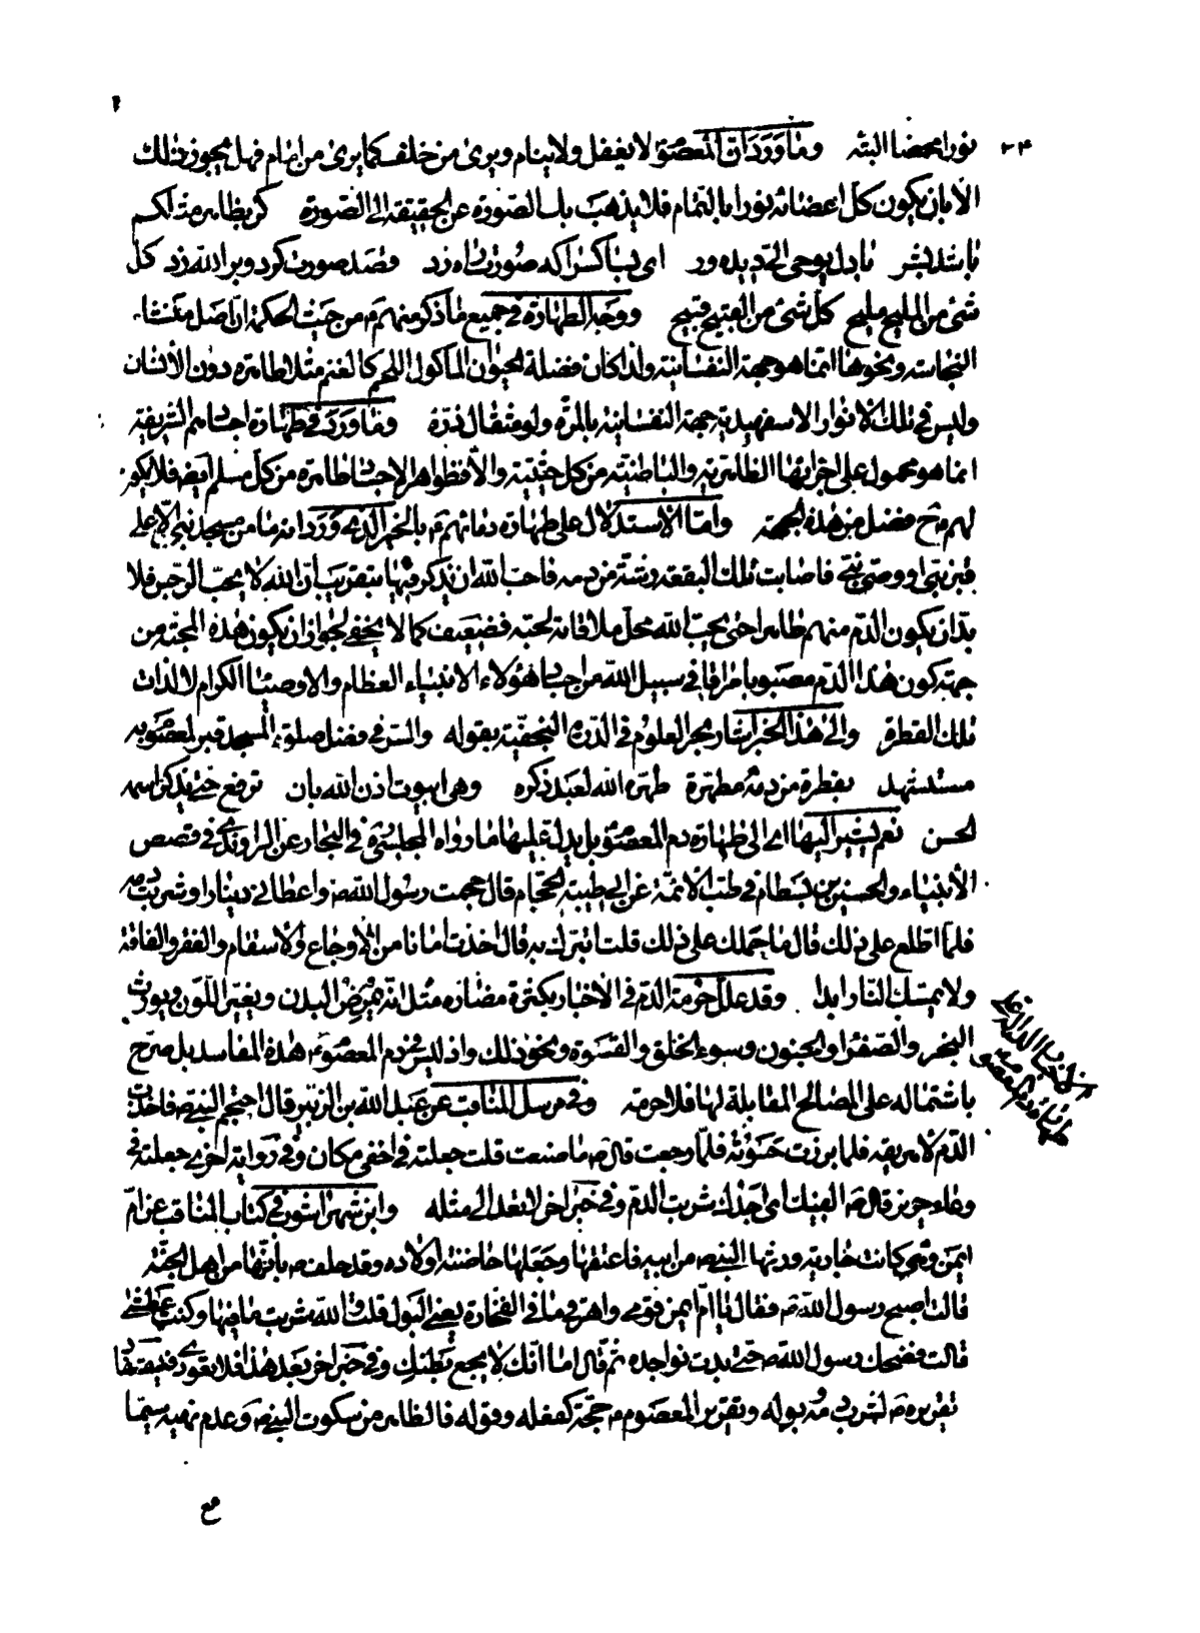 ٢٣
نورا محضا البتة وما ورد ان المعصوم لا يغفل ولا ينام ويرى من خلف كما يرى من امام فهل يجوز ذلك
الا بان يكون كل اعضائه نورا بالتمام فلا يذهب باب الصورة عن الحقيقة الى الصورة كر بظاهر مثلكم
باشد بشر با دل يوحى الى ديده ور اى بسا كس را كه صورت راه زد قصد صورت كرد وبر الله زد كل
شئ من المليح مليح كل شئ من القبيح قبيح ووجه الطهارة في جميع ما ذكر منهم من حيث الحكمة ان اصل منشاء
النجاسة ونحوها انما هو جهة النفسانية ولذا كان فضلة الحيوان المأكول اللحم كالغنم مثلا طاهرة دون الانسان
وليس في تلك الانوار الاسفهبدية جهة النفسانية بالمرة ولو مثقال ذرة وما ورد في طهارة اجسادهم الشريفة
انما هو محمول على اجزائها الظاهرية والباطنية من كل حيثية والا فظواهر الاجساد طاهرة من كل مسلم ايضا فلا يكون
لهم ح فضل من هذه الجهة واما الاستدلال على طهارة دمائهم بالخبر الذي ورد انه ما من مسجد بني الا على
قبر نبي او وصي نبي فاصابت تلك البقعة رشة من دمه فاحب الله ان يذكر فيها بتقريب ان الله لا يحب الرجس فلا
بد ان يكون الدم منهم طاهرا حتى يحب الله محل ملاقاته لمحبه فضعيف كما لا يخفى لجواز ان يكون هذه المحبة من
جهة كون هذا الدم مصبوبا مراقا في سبيل الله من اجساد هؤلاء الانبياء العظام والاوصياء الكرام لا لذات
تلك القطرة والى هذا الخبر اشار بحر العلوم في الدرة النجفية بقوله والسر في فضل صلوة المسجد قبر لمعصوم به
مستشهد بقطرة من دمه مطهرة طهره الله لعبد ذكره وهي بيوت اذن الله بان ترفع حتى يذكر اسمه
الحسن نعم يشير اليها اي الى طهارة دم المعصوم بل يدل عليها ما رواه المجلسي في البحار عن الراوندي في قصص
الانبياء والحسين بن بسطام في طب الائمة عن ابي طيبة الحجام قال حجمت رسول الله ص واعطاني دينارا وشربت دمه
فلما اطلع على ذلك قال ما حملك على ذلك قلت اتبرك به قال اخذت امانا من الاوجاع والاسقام والفقر والفاقة
ولا يمسك النار ابدا وقد علل حرمة الدم في الاخبار بكثرة مضاره مثل انه يمرض البدن ويغير اللون ويورث
البخر والصفراء والجنون وسوء الخلق والقسوة ونحو ذلك واذ ليس في دم المعصوم هذه المفاسد بل صرح
باشتماله على المصالح المقابلة لها فلا حرمة وفي مرسل المناقب عن عبد الله بن الزبير قال احتجم النبي ص فاخذت
الدم لاهريقه فلما برزت حسوته فلما رجعت قال ص ما صنعت قلت جعلته في اخفى مكان وفي رواية اخرى جعلته في
وعاء حريز قال ص الفيك اي اجدك شربت الدم وفي خبر اخر لا تعد الى مثله وابن شهراشوب في كتاب المناقب عن ام
ايمن وهي كانت خادمة ورثها النبي ص من ابيه فاعتقها وجعلها حاضنة اولاده وقد حلف ص بانها من اهل الجنة
قالت اصبح رسول الله ص فقال يا ام ايمن قومي واهرقي ما في الفخارة يعني البول قلت والله شربت ما فيها وكنت عطشى
قالت فضحك رسول الله ص حتى بدت نواجذه ثم قال اما انك لا يجع بطنك وفي خبر اخر بعد هذا فلا تعودي
تقريره ص لشرب دمه وبوله وتقرير المعصوم حجة كفعله وقوله فالظاهر من سكوت النبي ص وعدم نهيه سيما
مع